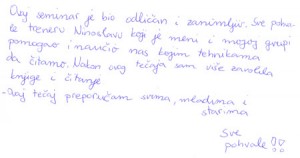 Ovaj seminar je bio odličan i zanimljiv. Sve pohva-
le treneru Ninoslavu koji je meni i mojoj grupi
pomogao i naučio nas kojim tehnikama
da čitamo. Nakon ovog tečaja sam više zavolila
knjige i čitanje
- Ovaj tečaj preporučam svima, mladima i
starima
Sve
pohvale !!